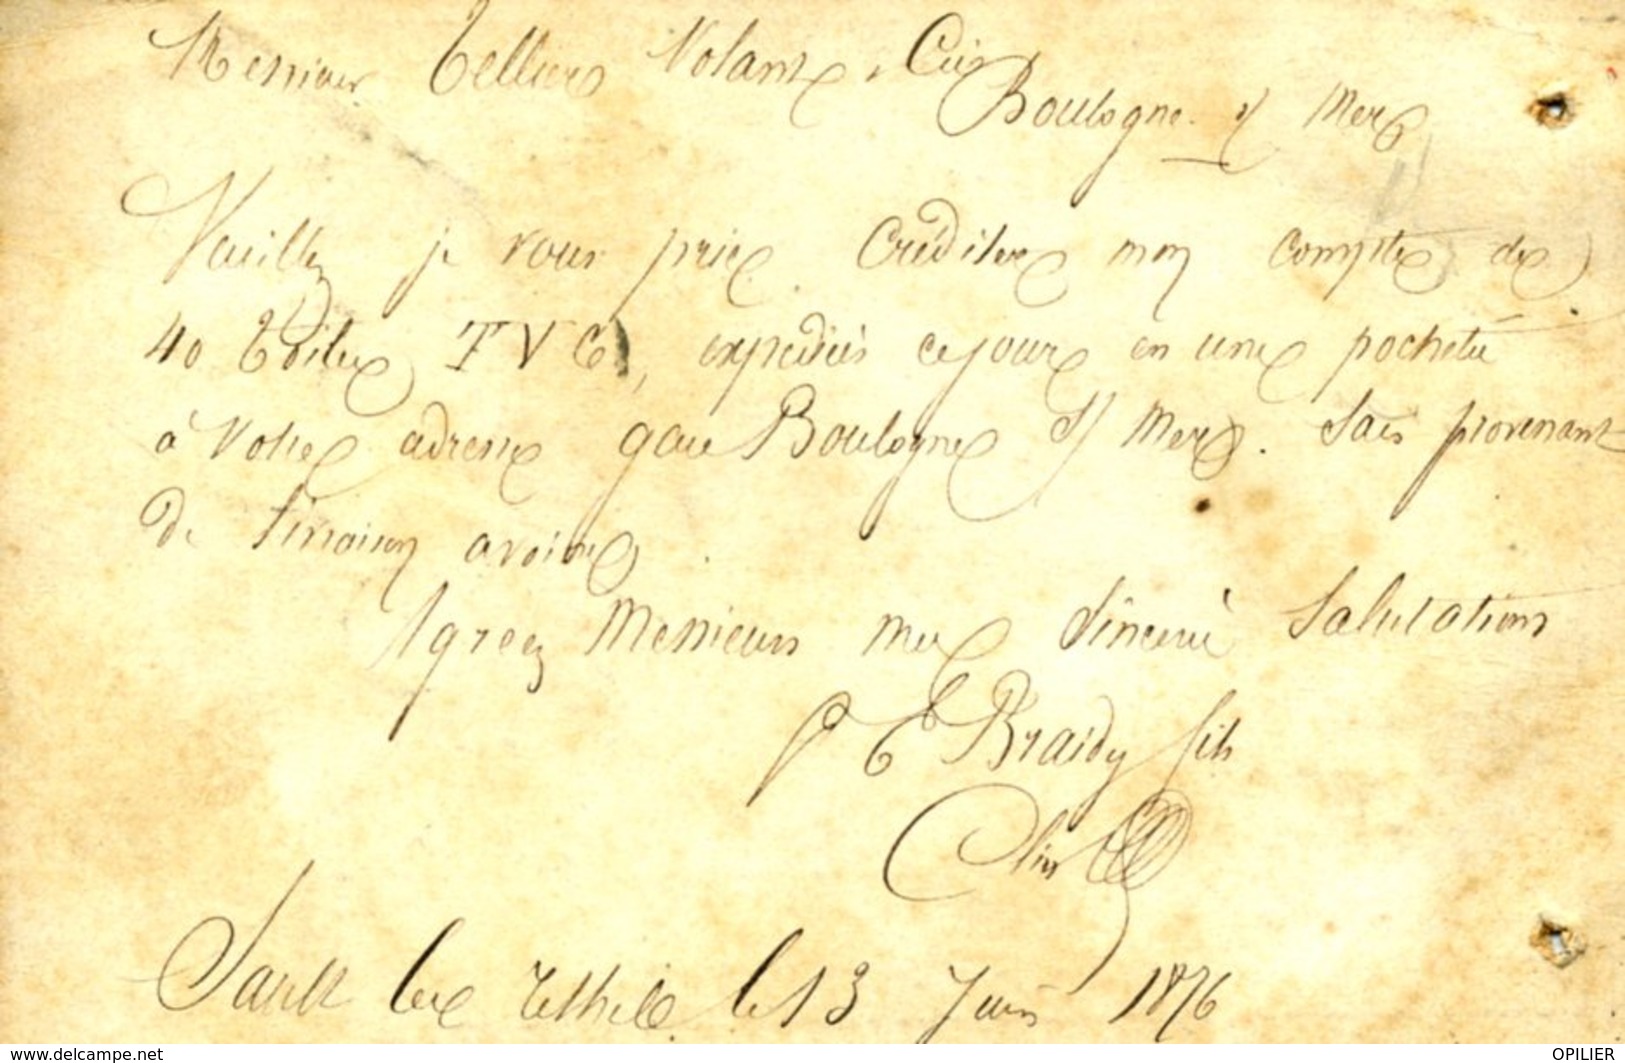 Messieurs Tellier Volant & Cie
Boulogne s/ Mer
Veuillez je vous prie créditer mon compte de
40 toiles TVC, expédiés ce jour en une pochetée
à votre adresse gare Boulogne s/ Mer. Sacs provenant
de livraison avoine.
Agréez Messieurs mes sincères salutations
P E Braidy fils
Sault les Rethel le 13 Juin 1876
www.delcampe.net
OPILIER